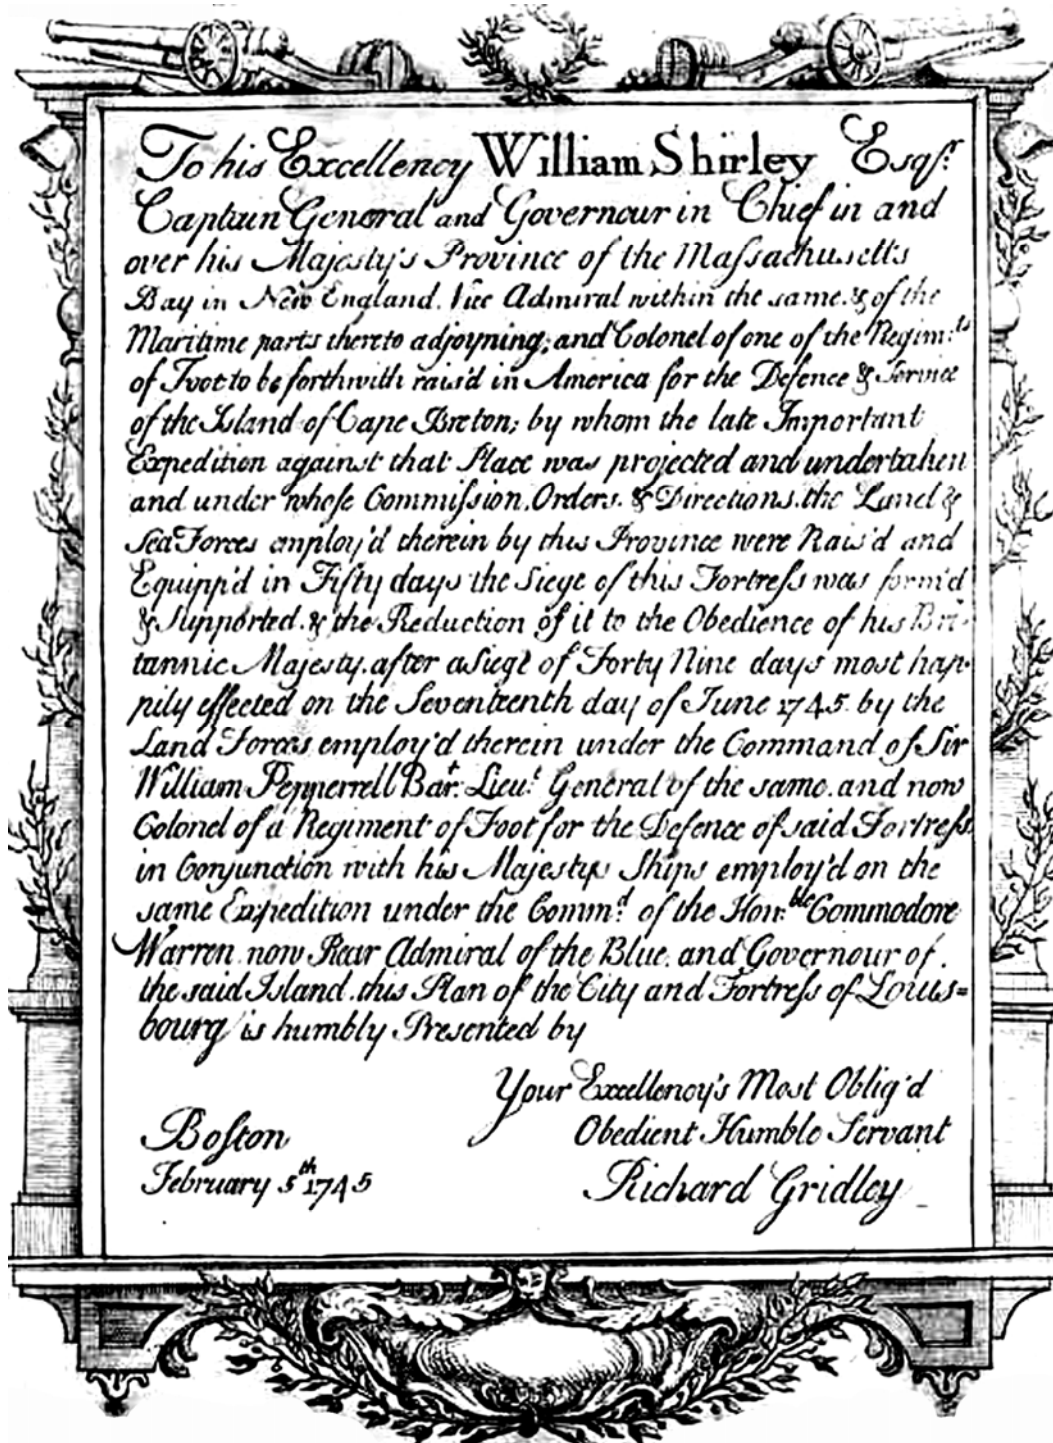 To his Excellency William Shirley Esqr.
Captain General and Governour in Chief in and
over his Majesty's Province of the Maſsachusetts
Bay in New England, Vice Admiral within the same & of the
Maritime parts thereto adjoyning; and Colonel of one of the Regim:ts
of Foot to be forthwith rais'd in America for the Defence & Service
of the Island of Cape Breton; by whom the late Important
Expedition against that Place was projected and undertaken
and under whose Commiſsion, Orders, & Directions, the Land &
Sea Forces employ'd therein by this Province were Rais'd and
Equipp'd in Fifty days the Siege of this Fortreſs was form'd
& Supported, & the Reduction of it to the Obedience of his Bri-
tannic Majesty, after a Siege of Forty Nine days most hap-
pily effected on the Seventeenth day of June 1745. by the
Land Forces employ'd therein under the Command of Sir
William Pepperrell Bart. Lieut. General of the same, and now
Colonel of a Regiment of Foot for the Defence of said Fortreſs
in Conjunction with his Majestys Ships employ'd on the
same Expedition under the Comm:d of the Hon:ble Commodore
Warren, now Rear Admiral of the Blue, and Governour of
the said Island, this Plan of the City and Fortreſs of Louis=
bourg is humbly Presented by
Your Excellency's Most Oblig'd
Obedient Humble Servant
Boſton
February 5th 1745
Richard Gridley